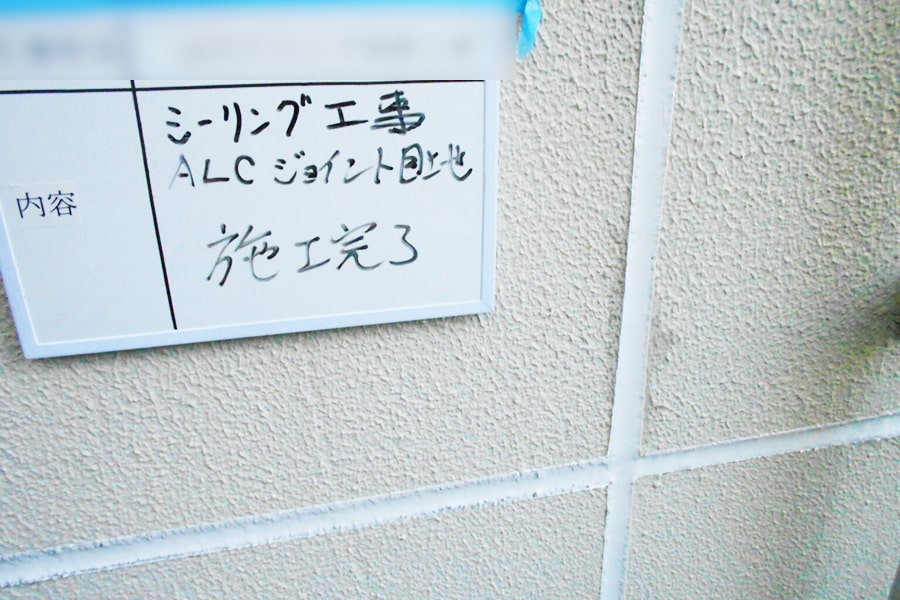 シーリング工事
ALC ジョイント目地
内容
施工完了